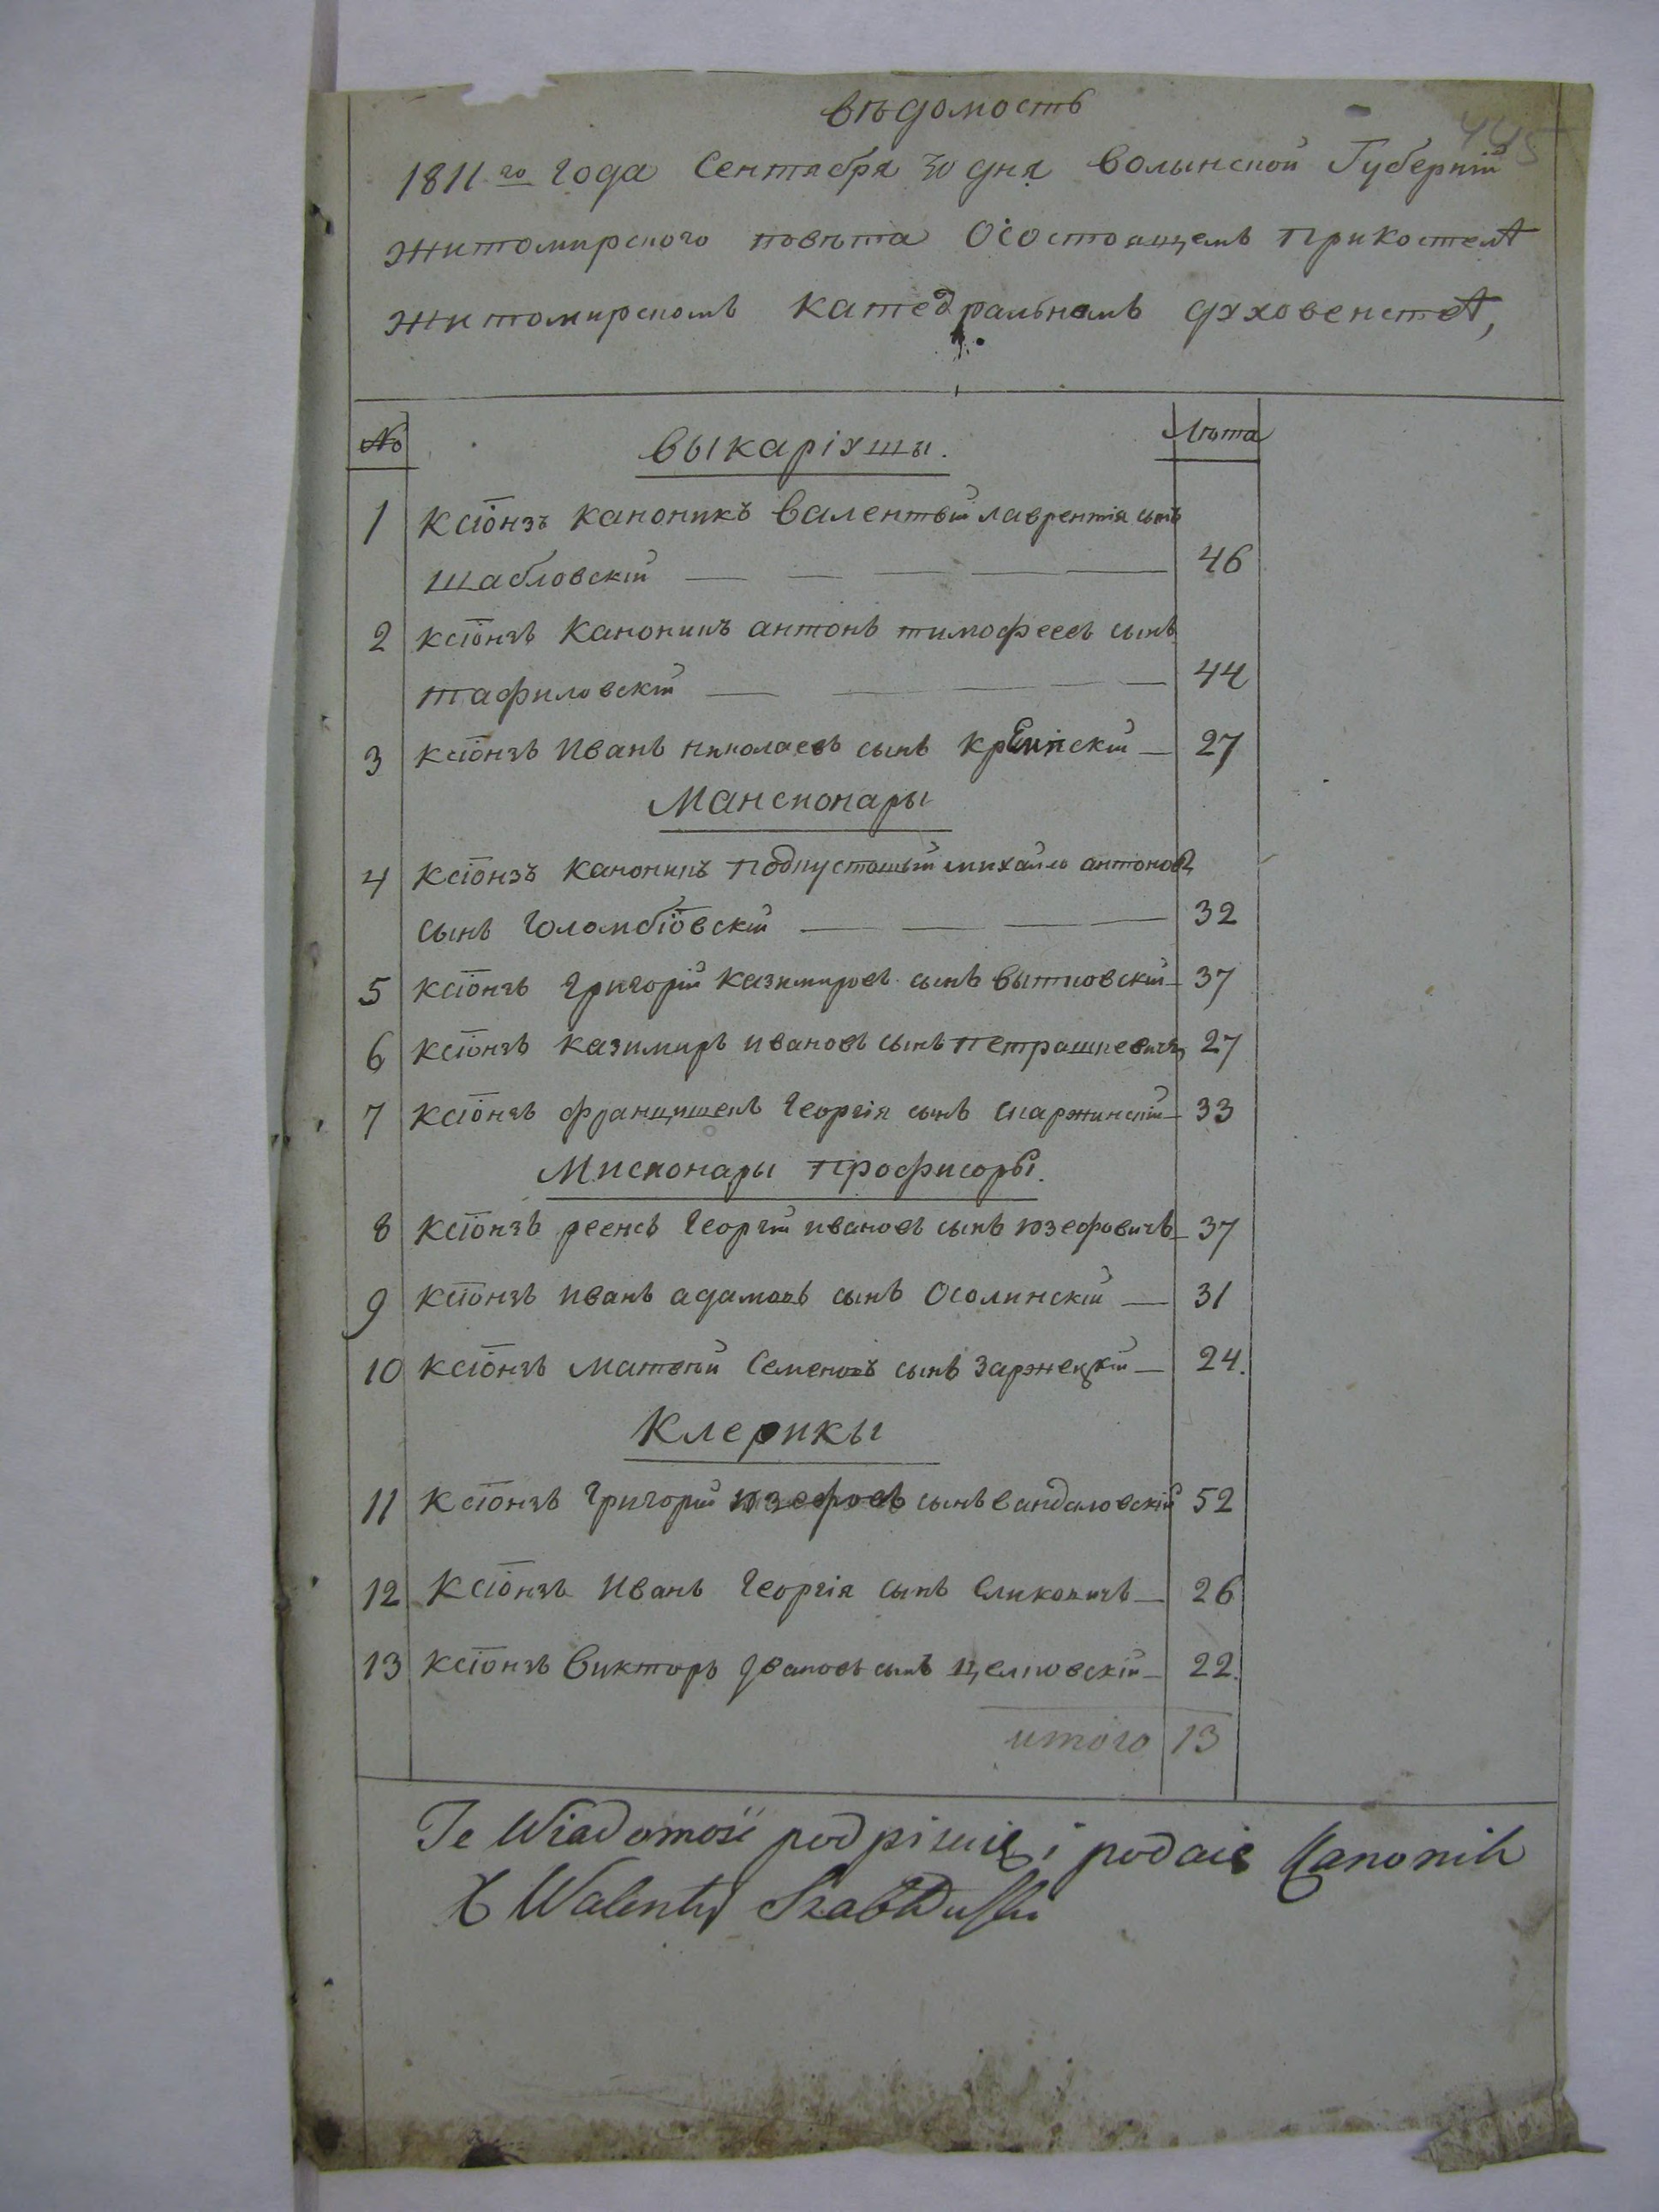 вѣдомость
445
1811го года Сентября 30 дня волынской Губерніи
житомирского повѣта Осостоящемъ прикостелѣ
житомирскомъ катедральномъ духовенствѣ,
№ выкаріушы. Лѣта
1 Ксіонзъ каноникъ валентый лаврентія сынъ
шабловскій 46
2 ксіонзъ каноникъ антонъ тимофеевъ сынъ
тафиловскій 44
3 ксіонзъ иванъ николаевъ сынъ 27
Мансионары
4 Ксіонзъ каноникъ михайло антоновъ
сынъ голомбіовскій 32
5 ксіонзъ григорій казимировъ сынъ вытковскій 37
6 ксіонзъ казимиръ ивановъ сынъ петрашкевичъ 27
7 ксіонзъ францишекъ георгія сынъ скаржинскій 33
Мисионары профисоры.
8 ксіонзъ реенсъ георгій ивановъ сынъ юзефовичъ 37
9 ксіонзъ иванъ адамовъ сынъ Осолинскій 31
10 ксіонзъ матвѣй Семеновъ сынъ заржецкій 24.
Клерикы
11 Ксіонзъ григорій юзефовъ сынъ вандаловскій 52
12 Ксіонзъ иванъ георгія сынъ 26
13 ксіонзъ викторъ ивановъ сынъ 22.
итого 13
Te Wiadomość podpisuię i podaię Kanonik
X Walenty Szabłowski